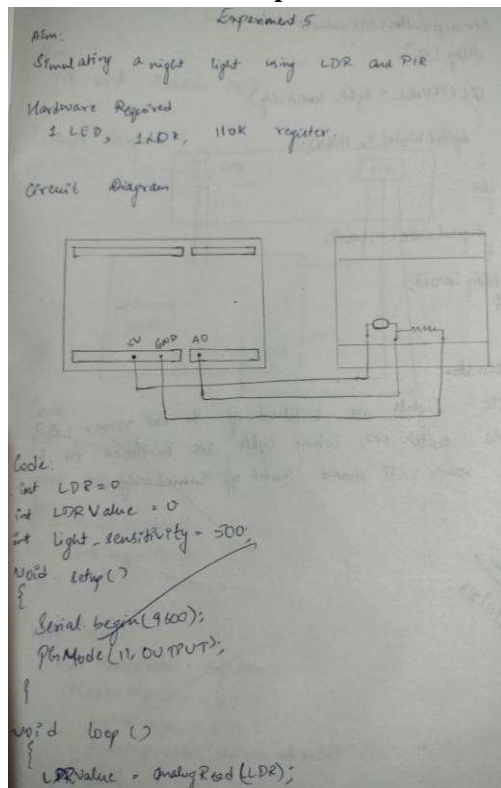 Experiment 5
Aim:
Simulating a night light using LDR and PIR
Hardware Required
1 LED, 1 LDR, 110K register
Circuit Diagram
5V GND A0
Code:
int LDR = 0
int LDR Value = 0
int light_sensitivity = 500;
void setup()
{
Serial.begin(9600);
PinMode(12, OUTPUT);
{
void loop()
{
LDRValue = analogRead(LDR);